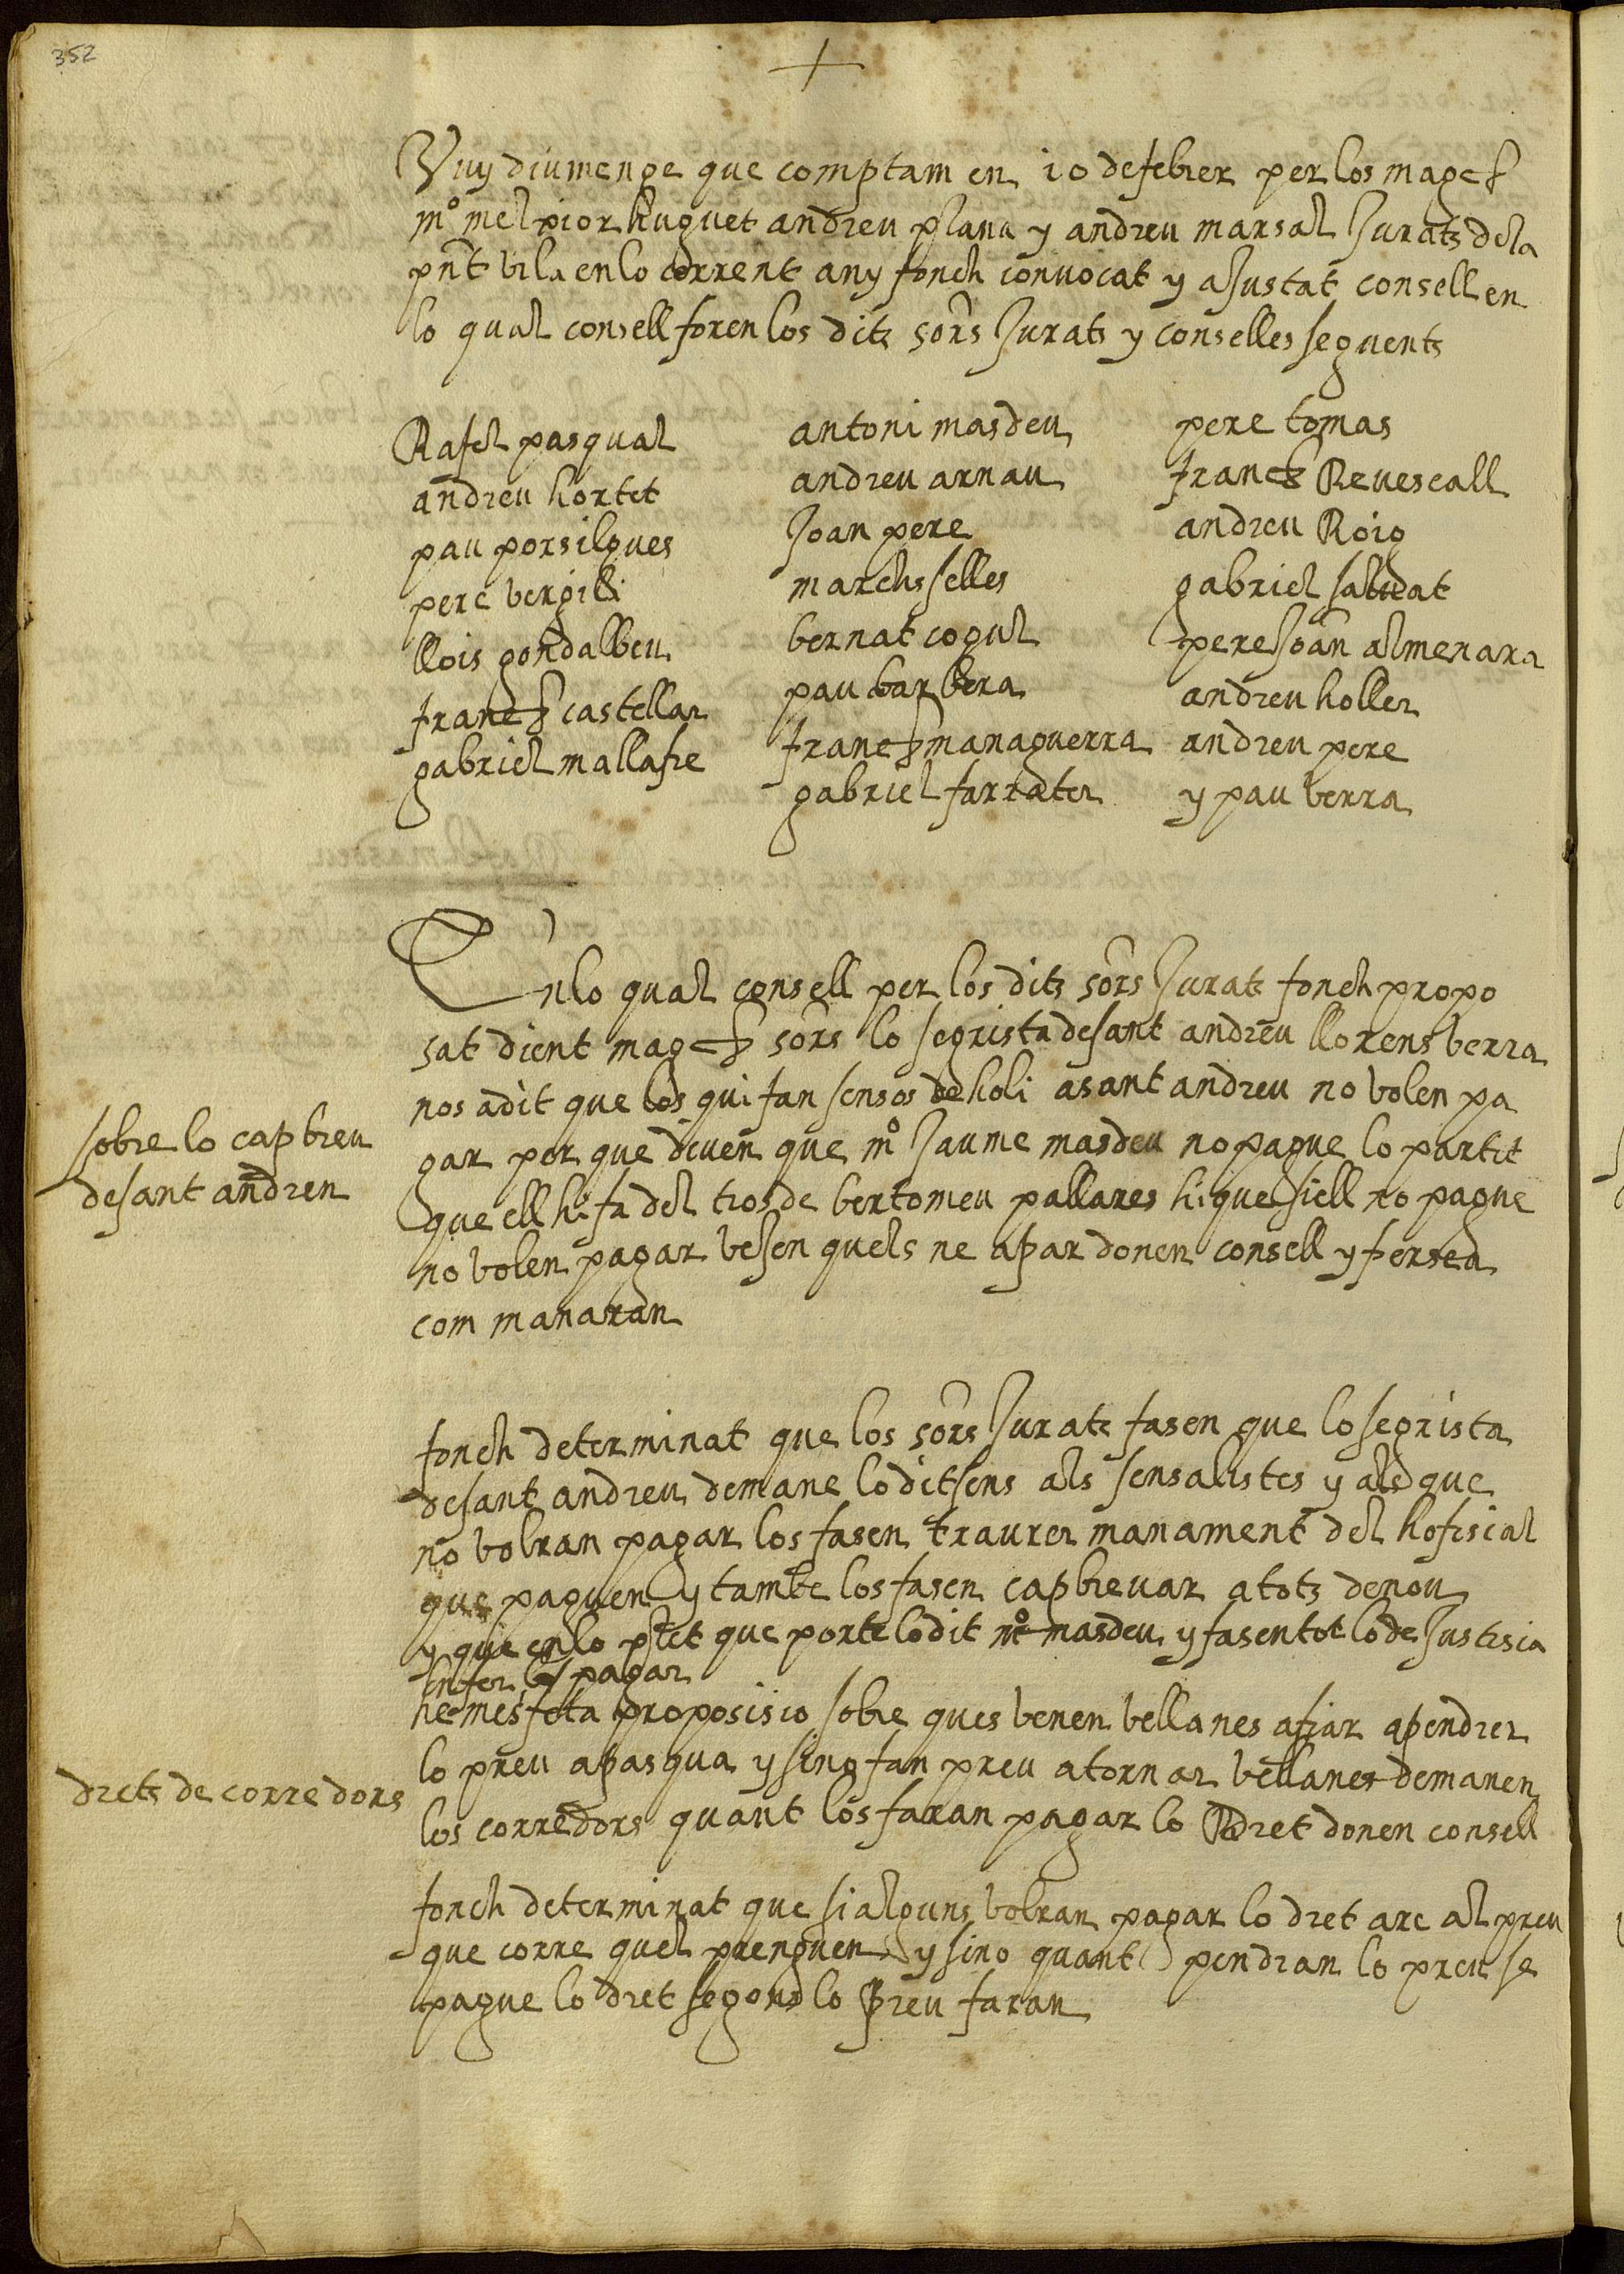 352
Vuy diumenge que comptam en 10 de febrer per los magchs
mº melxior huguet andreu plana y andreu marsal Jurats de la
pnt vila en lo corrent any fonch convocat y aJustat consell en
lo qual consell foren los dits sors Jurats y conselles seguents
Rafel pasqual
andreu hortet
pau porsilgues
pere vergili
llois gondalbeu
franch castellar
gabriel mallafre
antoni masdeu
andreu arnau
Joan pere
march selles
bernat cogul
pau barbera
franch managuerra
gabriel farrater
pere tomas
franch Revescall
andreu Roig
gabriel salvat
pere Joan almenara
andreu holler
andreu pere
y pau verra
En lo qual consell per los dits sors Jurats fonch propo
sat dient magchs sors lo segrista de sant andreu llorens verra
nos a dit que los qui fan sensos de holi a sant andreu no volen pa
gar per que diuen que mº Jaume masdeu no pague lo partit
que ell hi fa del tros de bertomeu pallares hi que si ell no pague
no volen pagar veJen quels ne apar donen consell y per sea
com manaran
sobre lo capbreu
de sant andreu
fonch determinat que los sors Jurats fasen que lo segrista
de sant andreu demane lo dit sens als sensalistes y als que
no volran pagar los fasen traurer manament del hofisial
que paguen y tambe los fasen capbrevar a tots de nou
y que en lo plet que porte lo dit mº masdeu y fasen tot lo de Justisia
en fer los pagar
he mes feta proposisio sobre ques venen vellanes a fiar a pendrer
lo preu a pasqua y si no fan preu a tornar vellanes demanen
los corredors quant los faran pagar lo dret donen consell
drets de corredors
fonch determinat que si alguns volran pagar lo dret are al preu
que corre quel prenguen y sino quant pendran lo preu se
pague lo dret segons lo preu faran